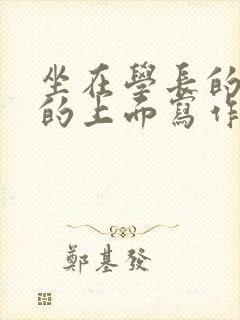 坐在學長的
的上而寫作
鄭基發